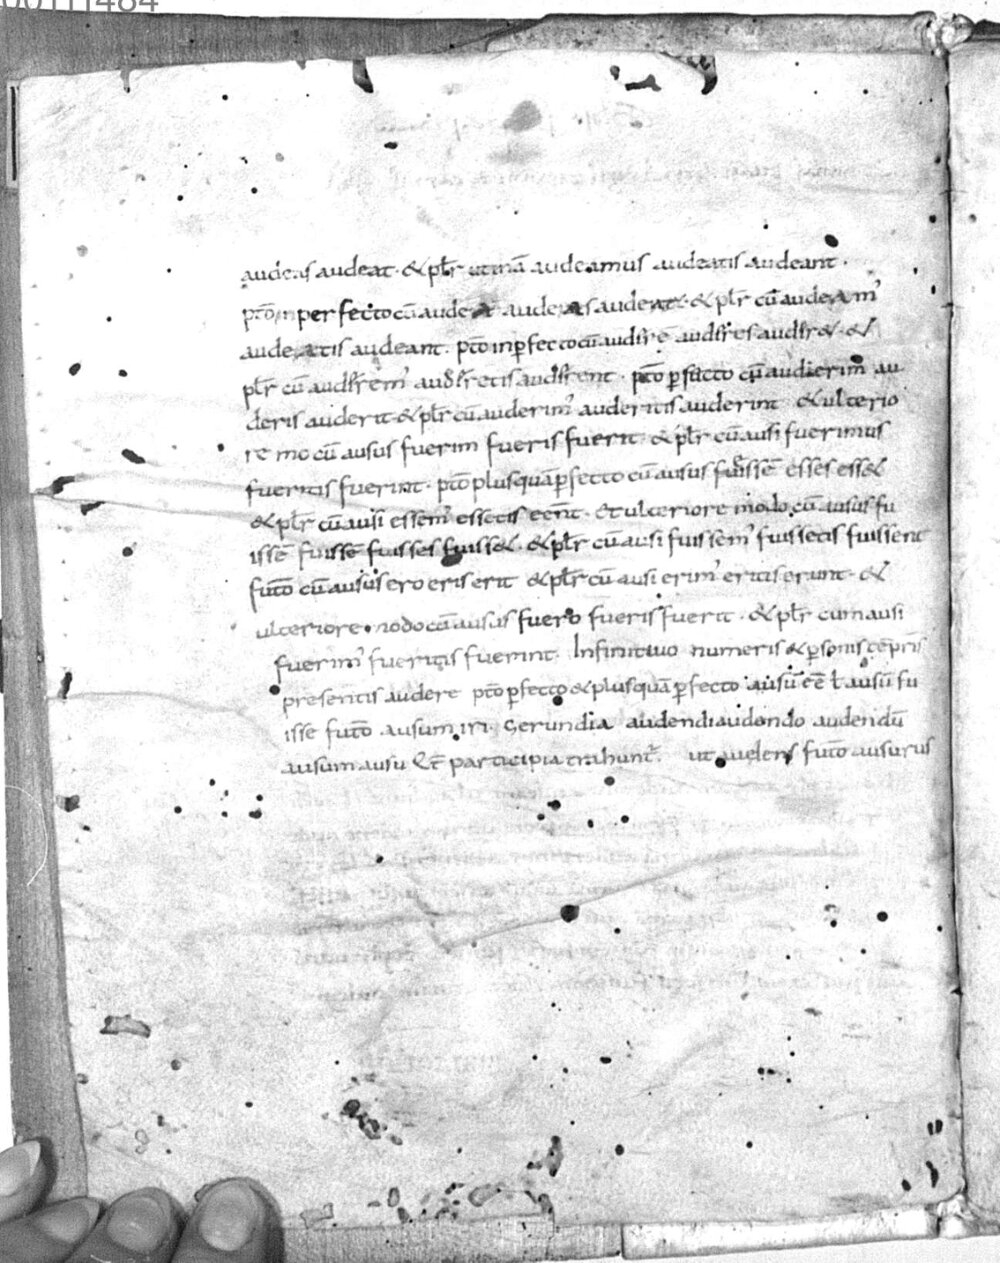 audeas audeat · & plr̃ utinā audeamus audeatis audeant ·
p̄tō inperfecto cū audeā audeas audeat · & plr̃ cū audeam᾽
audeatis audeant · p̄tō inꝑfecto cū audẽrē audẽres audẽr& · &
plr̃ cū audẽrem᾽ audẽretis audẽrent · p̄tō ꝑfecto cū audierim au
deris auderit & plr̃ cū auderim᾽ auderitis auderint · & ulterio
re mo cū ausus fuerim fueris fuerit · & plr̃ cū ausi fuerimus
fueritis fuerint · p̄tō plusquā ꝑfecto cū ausus fuissē esses ess&
& plr̃ cū ausi essem᾽ essetis eēnt · & ulteriore modo cū ausus fu
issē fuissē fuisses fuiss& · & plr̃ cū ausi fuissem᾽ fuissetis fuissent
futō cū ausus ero eris erit & plr̃ cū ausi erim᾽ eritis erunt · &
ulteriore modo cū ausus fuero fueris fuerit · & plr̃ cum ausi
fuerim᾽ fueritis fuerint · Infinitiuo numeris & ꝑsonis
presentis audere p̄tō ꝑfecto & plusquā ꝑfecto ausū eē ł ausū fu
isse futō ausum iri · Gerundia audendi audendo audendū
ausum ausu participia trahunt᾽ ut audens futō ausurus